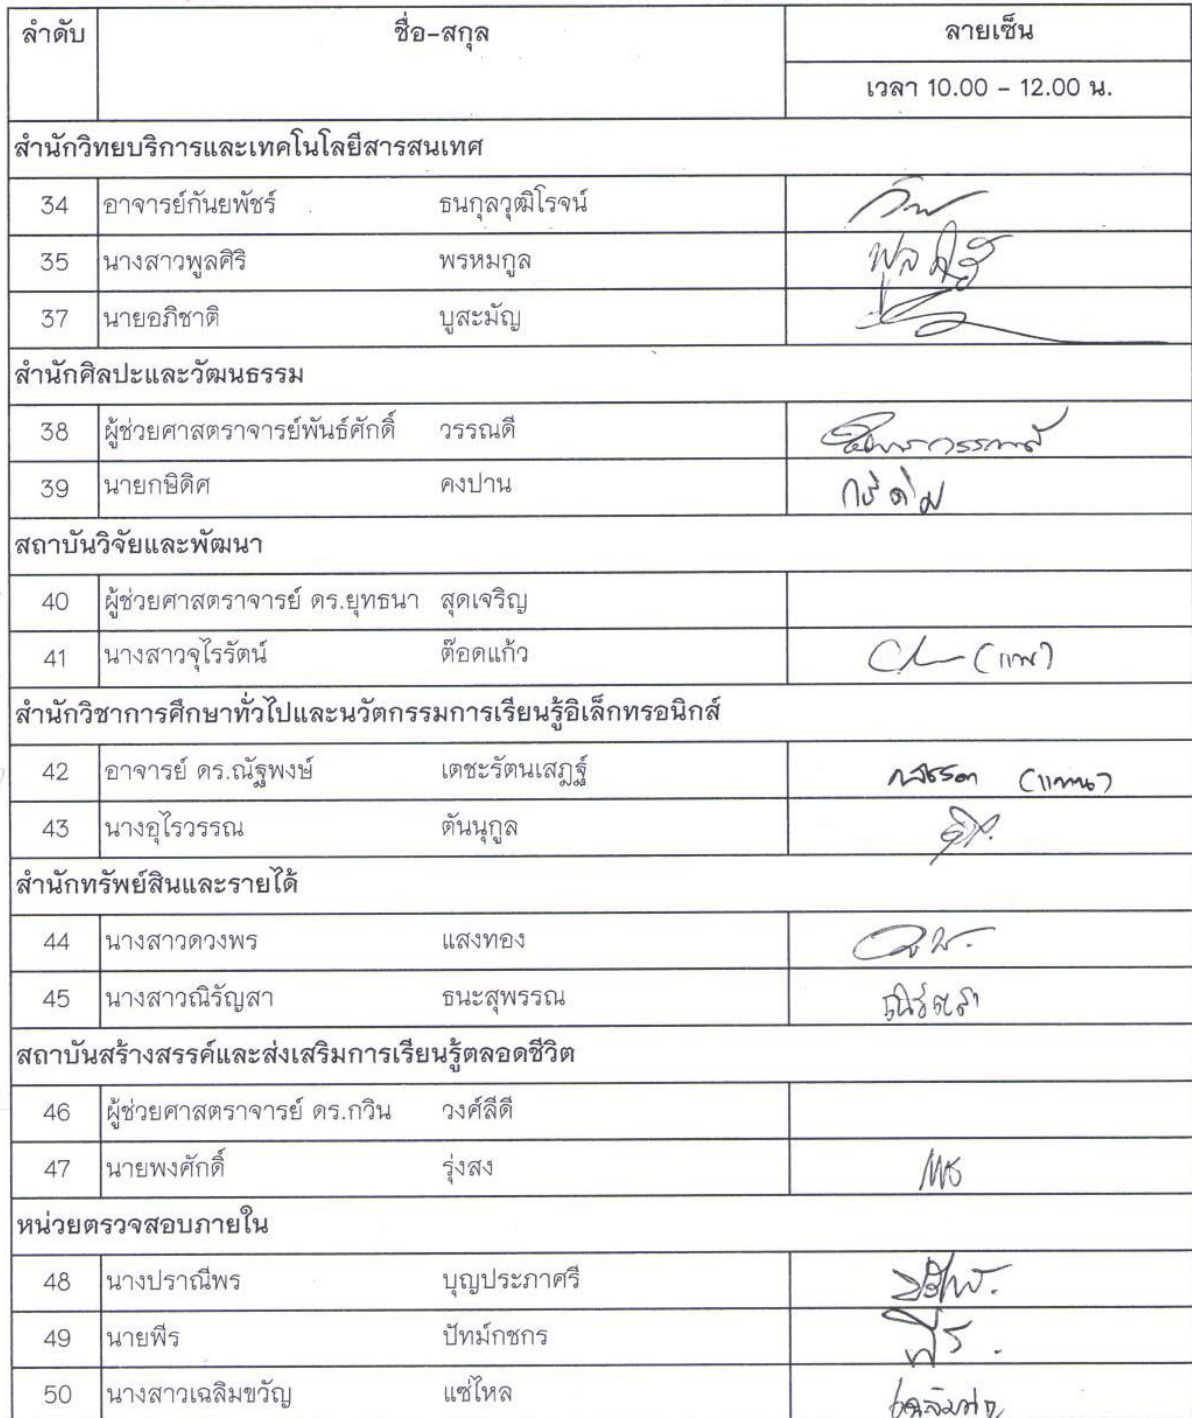 ลำดับ ชื่อ-สกุล ลายเซ็น
เวลา 10.00 - 12.00 น.
สำนักวิทยบริการและเทคโนโลยีสารสนเทศ
34 อาจารย์กันยพัชร์ ธนกุลวุฒิโรจน์
35 นางสาวพูลศิริ พรหมกูล พูลศิริ
37 นายอภิชาติ บูสะมัญ
สำนักศิลปะและวัฒนธรรม
38 ผู้ช่วยศาสตราจารย์พันธ์ศักดิ์ วรรณดี
39 นายกษิดิศ คงปาน
สถาบันวิจัยและพัฒนา
40 ผู้ช่วยศาสตราจารย์ ดร.ยุทธนา สุดเจริญ
41 นางสาวจุไรรัตน์ ต๊อดแก้ว (แทน)
สำนักวิชาการศึกษาทั่วไปและนวัตกรรมการเรียนรู้อิเล็กทรอนิกส์
42 อาจารย์ ดร.ณัฐพงษ์ เตชะรัตนเสฏฐ์ (แทน)
43 นางอุไรวรรณ ตันนุกูล
สำนักทรัพย์สินและรายได้
44 นางสาวดวงพร แสงทอง
45 นางสาวณิรัญสา ธนะสุพรรณ
สถาบันสร้างสรรค์และส่งเสริมการเรียนรู้ตลอดชีวิต
46 ผู้ช่วยศาสตราจารย์ ดร.กวิน วงศ์ลีดี
47 นายพงศักดิ์ รุ่งสง
หน่วยตรวจสอบภายใน
48 นางปราณีพร บุญประภาศรี
49 นายพีร ปัทม์กชกร พีร
50 นางสาวเฉลิมขวัญ แซ่ไหล